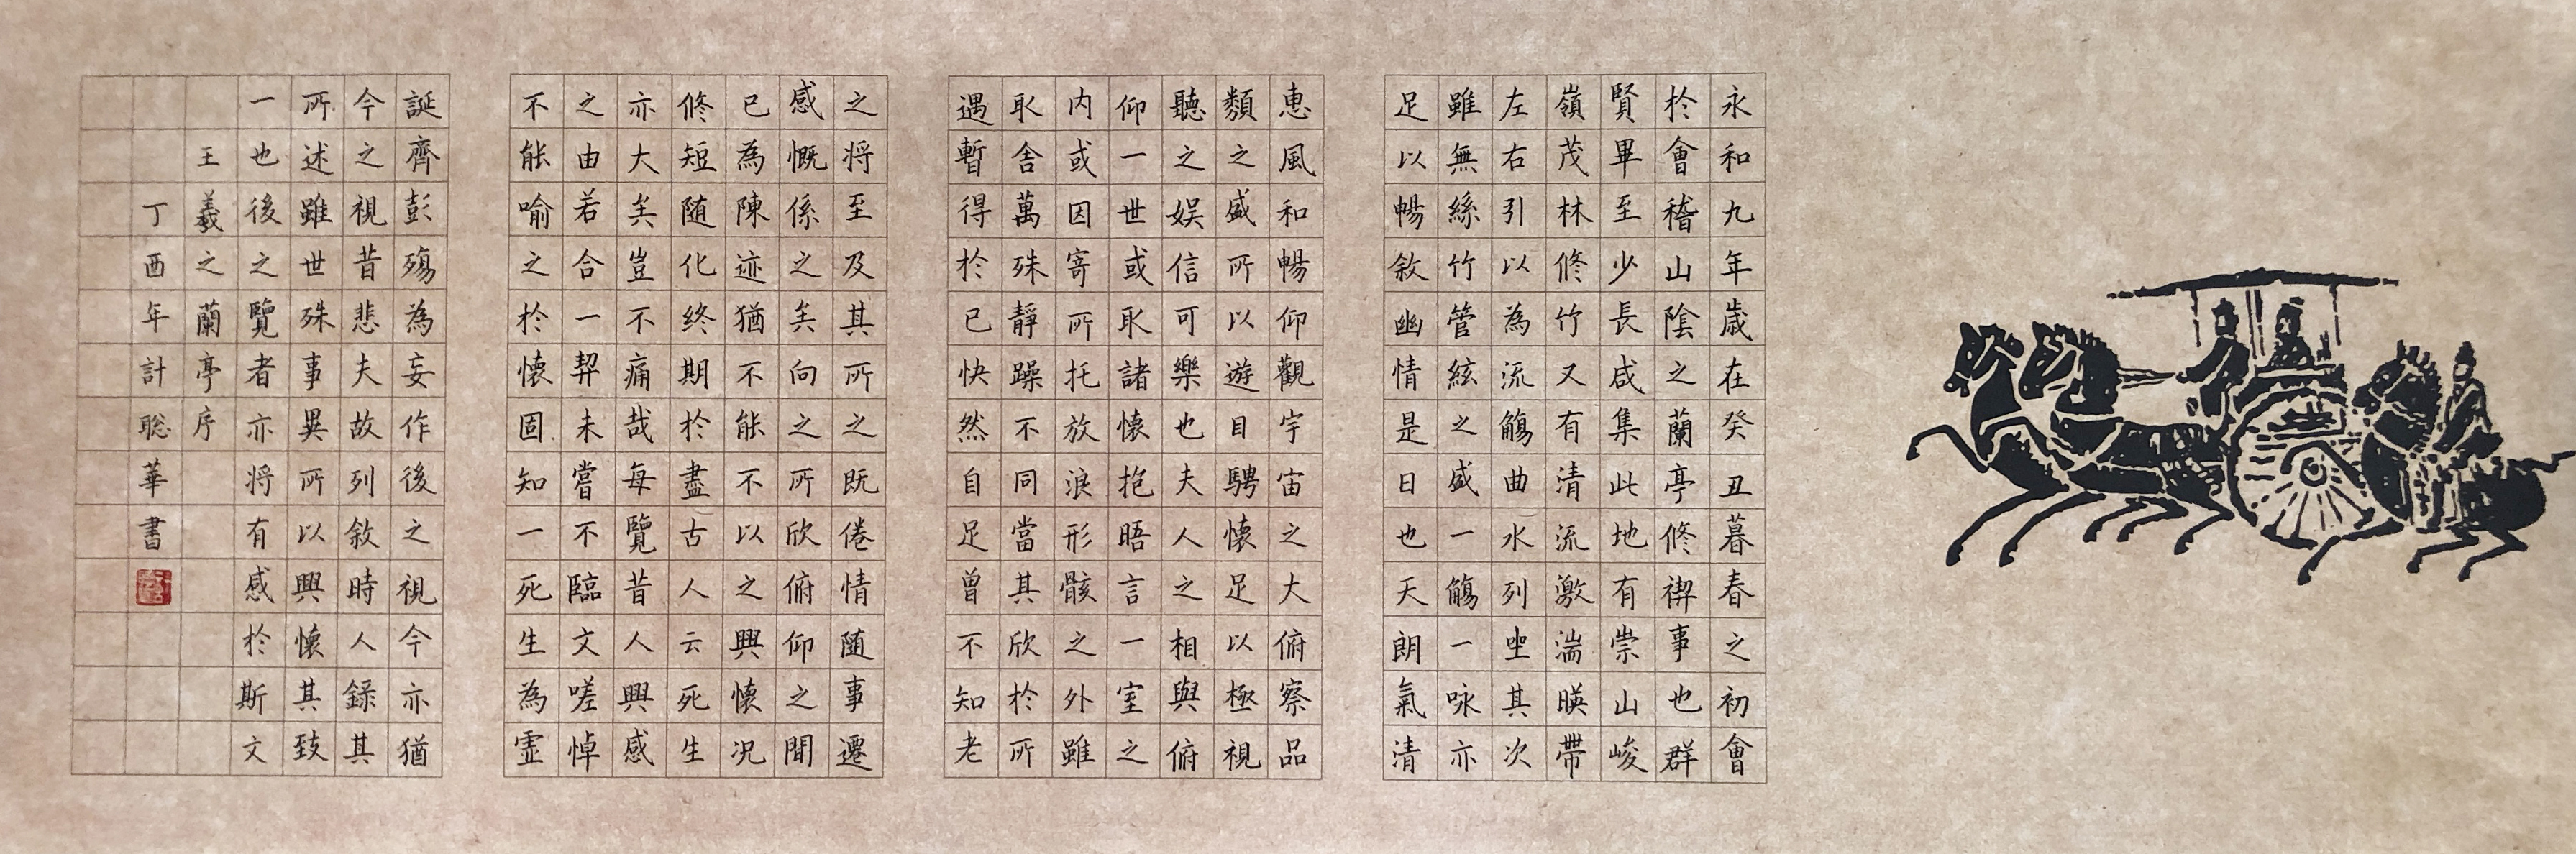 永和九年歲在癸丑暮春之初會
於會稽山陰之蘭亭修禊事也群
賢畢至少長咸集此地有崇山峻
嶺茂林修竹又有清流激湍暎帶
左右引以為流觴曲水列坐其次
雖無絲竹管絃之盛一觴一咏亦
足以暢敘幽情是日也天朗氣清
惠風和暢仰觀宇宙之大俯察品
類之盛所以遊目騁懷足以極視
聽之娛信可樂也夫人之相與俯
仰一世或取諸懷抱晤言一室之
内或因寄所托放浪形骸之外雖
取舍萬殊靜躁不同當其欣於所
遇暫得於己快然自足曾不知老
之將至及其所之既倦情随事遷
感慨係之矣向之所欣俯仰之間
已為陳迹猶不能不以之興懷况
修短随化终期於盡古人云死生
亦大矣豈不痛哉每覽昔人興感
之由若合一契未嘗不臨文嗟悼
不能喻之於懷固知一死生為虛
誕齊彭殤為妄作後之視今亦猶
今之視昔悲夫故列敘時人錄其
所述雖世殊事異所以興懷其致
一也後之覽者亦將有感於斯文
王羲之蘭亭序
丁酉年計聪華書